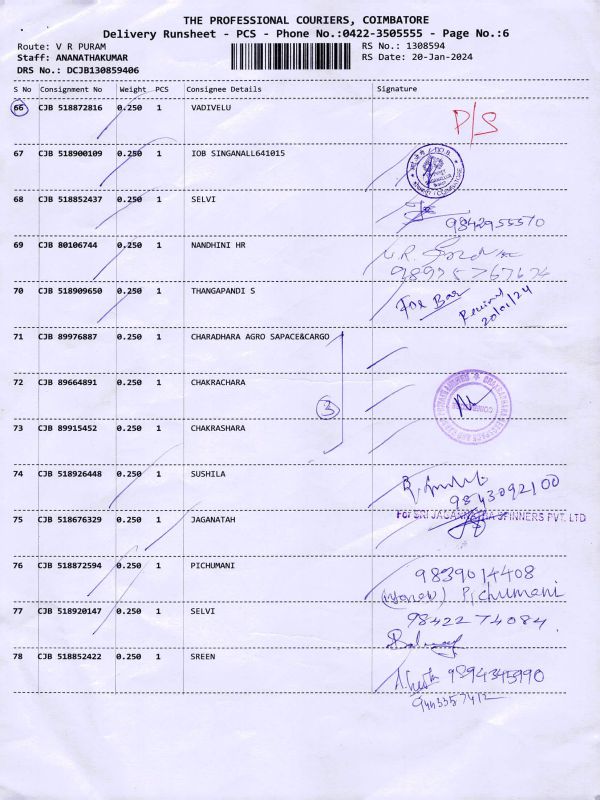 THE PROFESSIONAL COURIERS, COIMBATORE
Delivery Runsheet - PCS - Phone No.:0422-3505555 - Page No.:6
Route: V R PURAM RS No.: 1308594
Staff: ANANATHAKUMAR RS Date: 20-Jan-2024
DRS No.: DCJB130859406
S No Consignment No Weight PCS Consignee Details Signature
66 CJB 518872816 0.250 1 VADIVELU P/S
67 CJB 518900109 0.250 1 IOB SINGANALL641015
68 CJB 518852437 0.250 1 SELVI
9842955570
69 CJB 80106744 0.250 1 NANDHINI HR
70 CJB 518909650 0.250 1 THANGAPANDI S For Bar
20/01/24
71 CJB 89976887 0.250 1 CHARADHARA AGRO SAPACE&CARGO
72 CJB 89664891 0.250 1 CHAKRACHARA
3
73 CJB 89915452 0.250 1 CHAKRASHARA
74 CJB 518926448 0.250 1 SUSHILA
9843092100
75 CJB 518676329 0.250 1 JAGANATAH For SRI JAGANNATHA SPINNERS PVT. LTD
76 CJB 518872594 0.250 1 PICHUMANI 9839014408
Pichumani
77 CJB 518920147 0.250 1 SELVI 9842274084
78 CJB 518852422 0.250 1 SREEN 9894345990